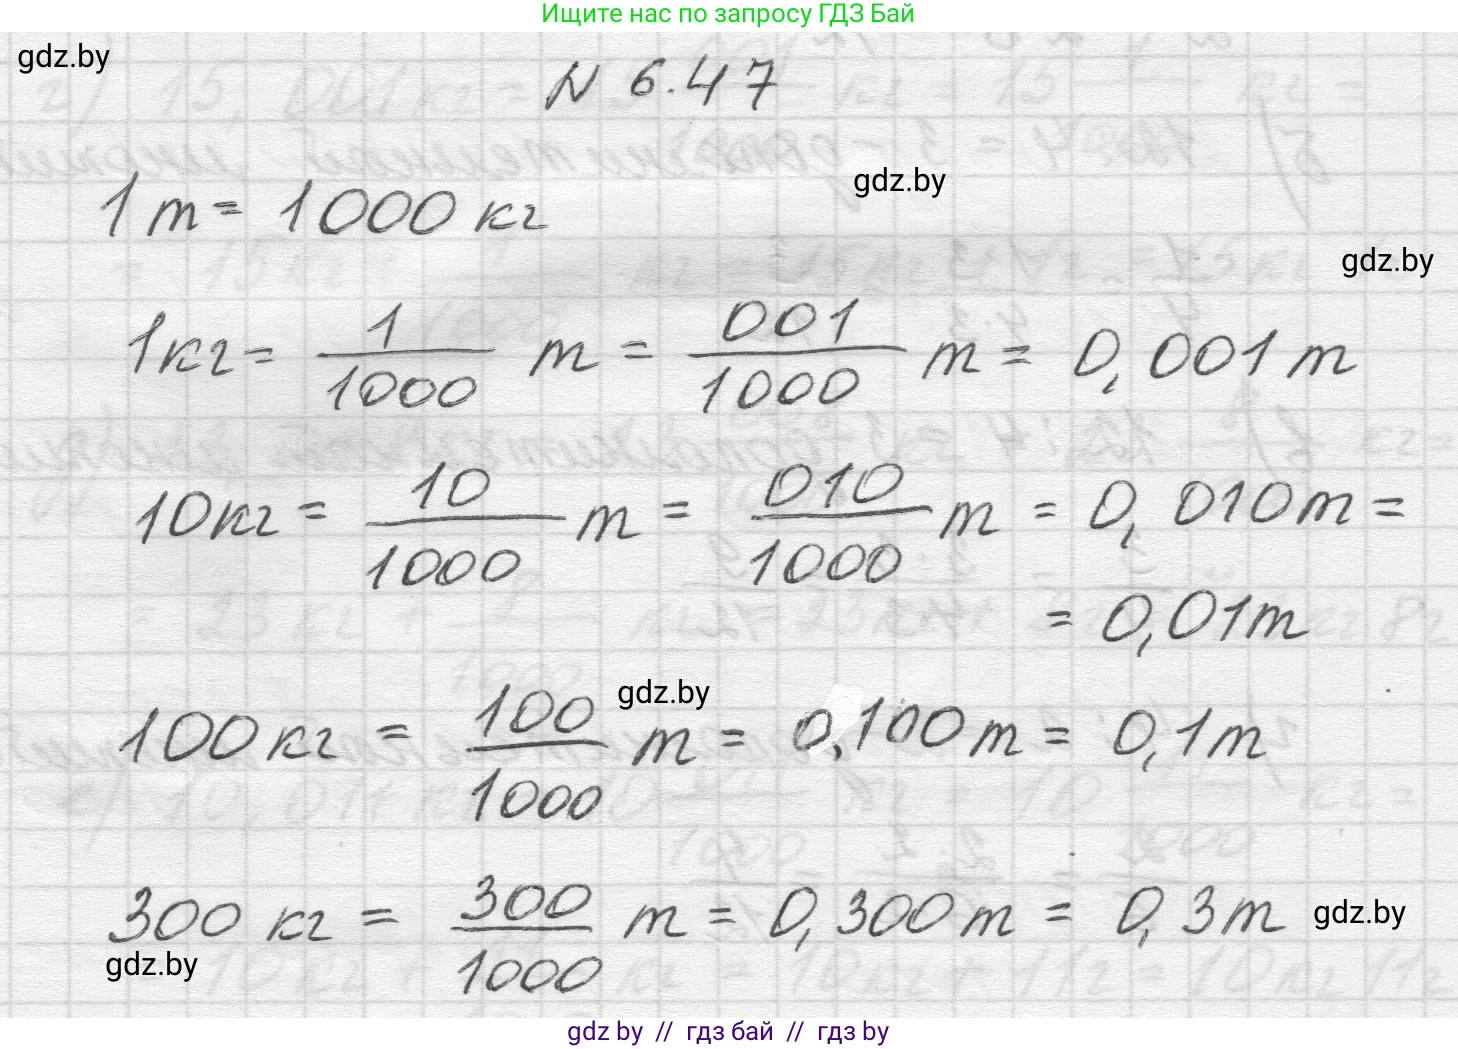 Ищите нас по запросу ГДЗ Бай
gdz.by
N 6.47
1 т = 1000 кг
gdz.by
gdz.by
1 кг = 1/1000 т = 001/1000 т = 0,001 т
10 кг = 10/1000 т = 010/1000 т = 0,010 т =
= 0,01 т
gdz.by
100 кг = 100/1000 т = 0,100 т = 0,1 т
300 кг = 300/1000 т = 0,300 т = 0,3 т
gdz.by
gdz.by
gdz by // гдз бай // гдз by